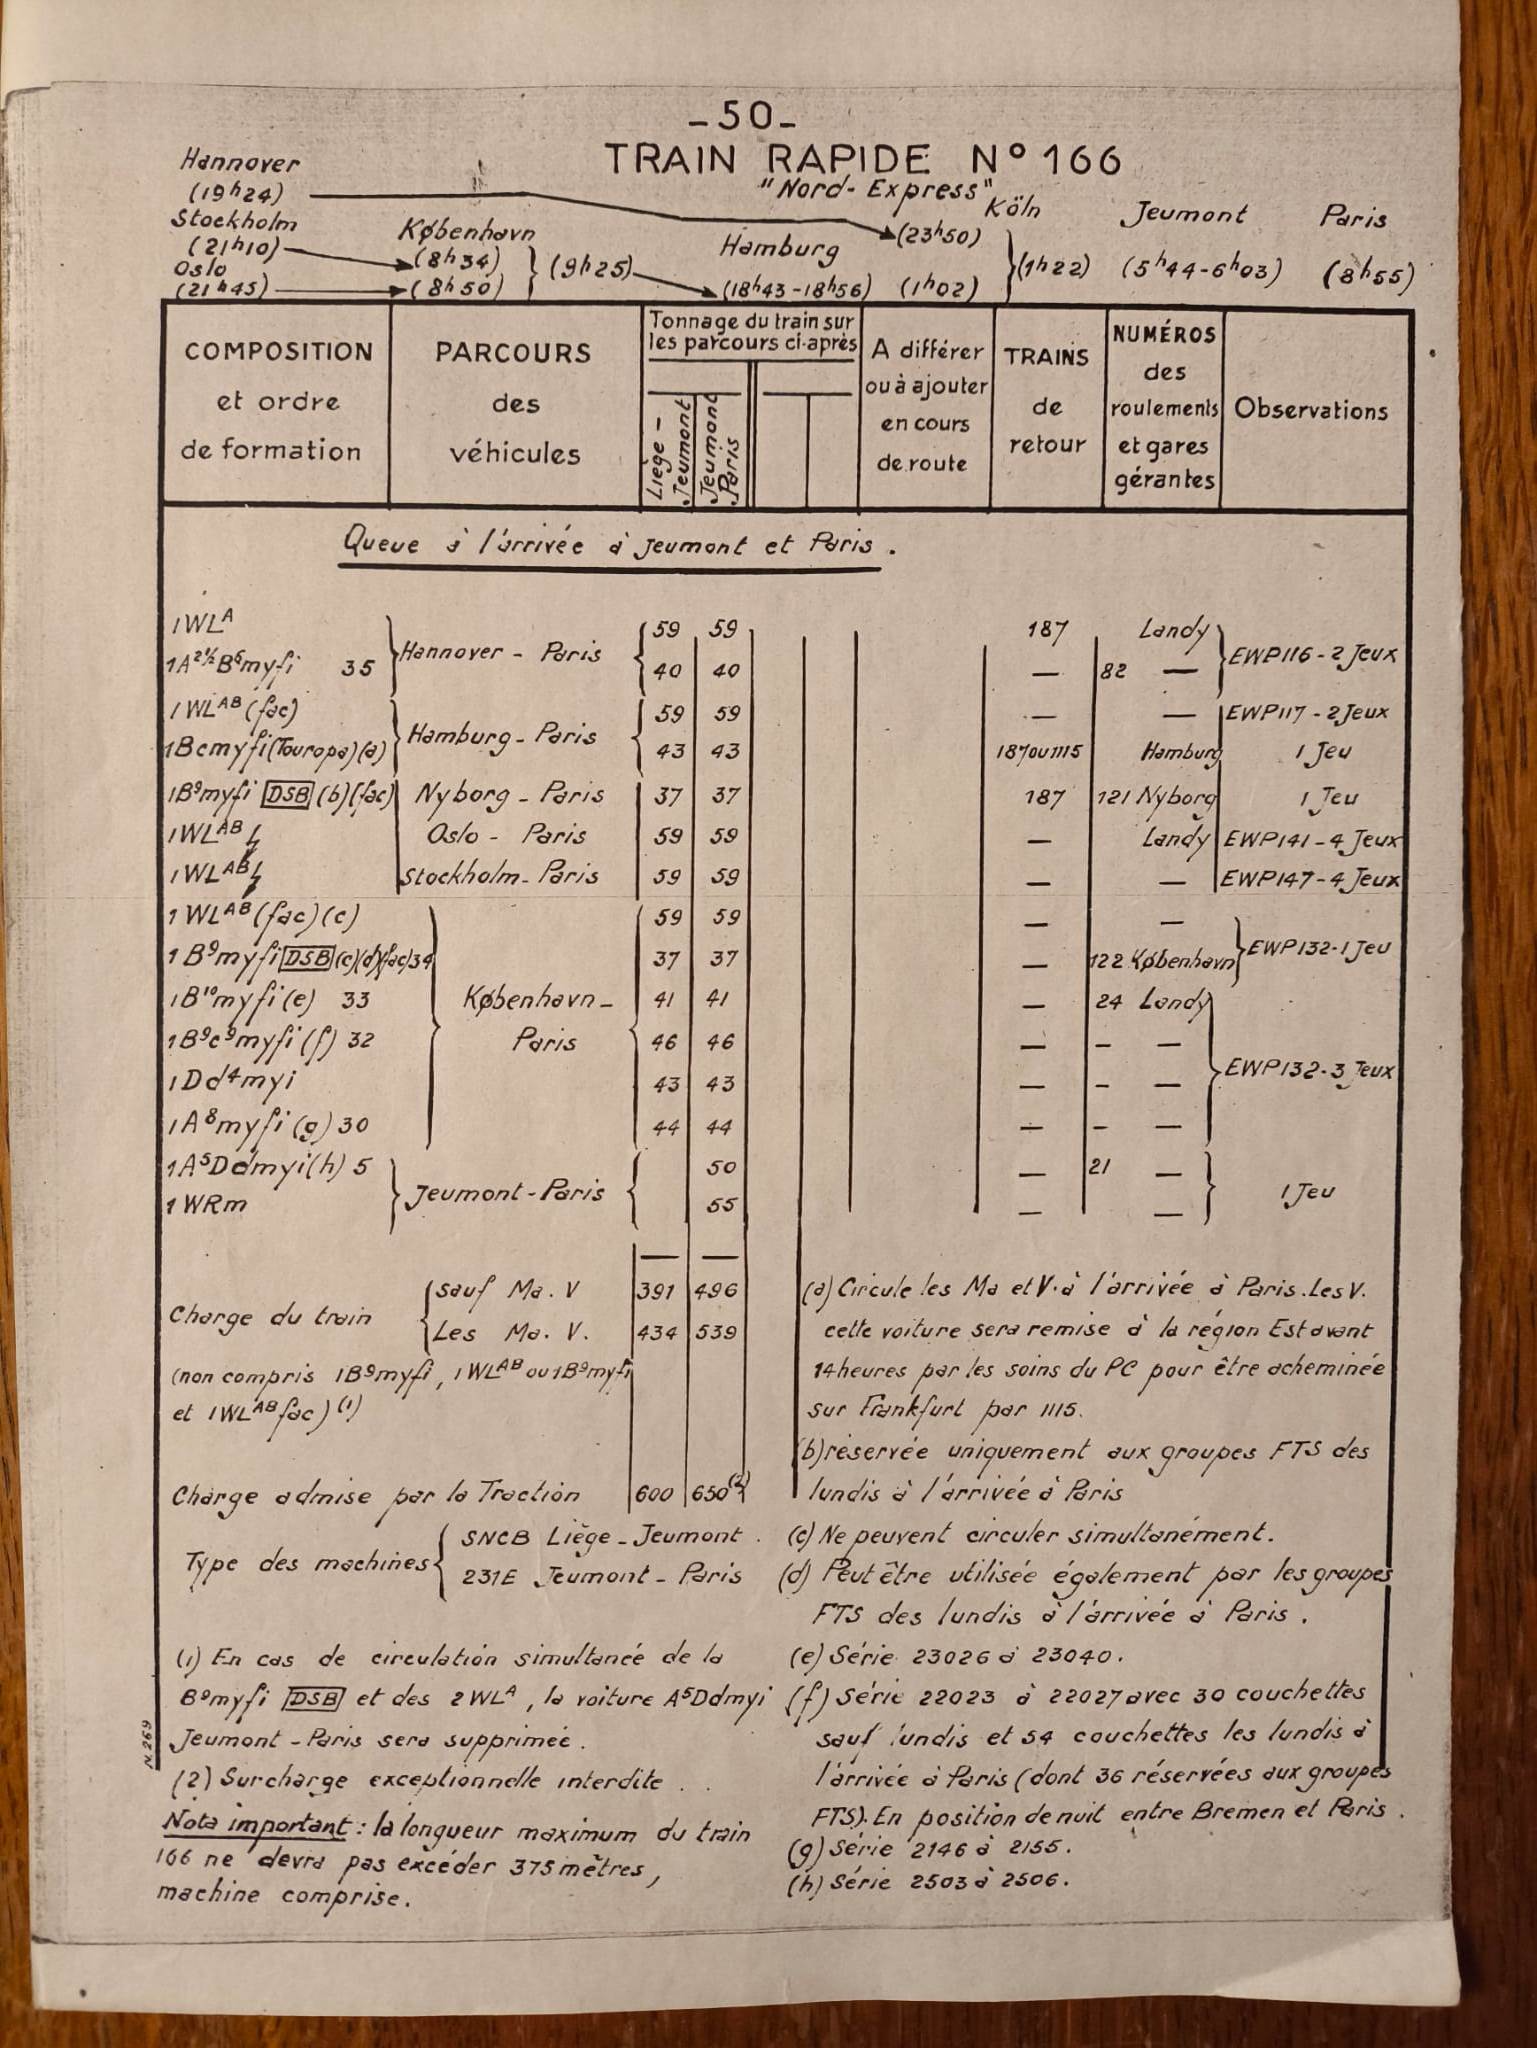 -50-
TRAIN RAPIDE N° 166
"Nord-Express"
Hannover
(19h24)
Köln
(23h50)
Jeumont
Paris
Stockholm
(21h10)
København
(8h34)
(9h25)
Hamburg
(1h22)
(5h44-6h03)
(8h55)
Oslo
(21h45)
(8h50)
(18h43-18h56)
(1h02)
COMPOSITION
et ordre
de formation
PARCOURS
des
véhicules
Tonnage du train sur
les parcours ci-après
Liège-
Jeumont
Jeumont
Paris
A différer
ou à ajouter
en cours
de route
TRAINS
de
retour
NUMÉROS
des
roulements
et gares
gérantes
Observations
Queue à l'arrivée à Jeumont et Paris.
1WLA 59 59 187 Landy
1A2½B6myfi 35 Hannover - Paris 40 40 — 82 — EWP116 - 2 Jeux
1WLAB (fac) 59 59 — — EWP117 - 2 Jeux
1Bcmyfi (Touropa) (a) Hamburg - Paris 43 43 187ou1115 Hamburg 1 Jeu
1B9myfi DSB (b) (fac) Nyborg - Paris 37 37 187 121 Nyborg 1 Jeu
1WLAB Oslo - Paris 59 59 — Landy EWP141 - 4 Jeux
1WLAB Stockholm - Paris 59 59 — — EWP147 - 4 Jeux
1WLAB (fac) (c) 59 59 — —
1B9myfi DSB (c)(d)(fac) 34 37 37 — 122 København EWP132-1 Jeu
1B10myfi (e) 33 København - 41 41 — 24 Landy
1B9c9myfi (f) 32 Paris 46 46 — - —
1Dd4myi 43 43 — - — EWP132-3 Jeux
1A8myfi (g) 30 44 44 — - —
1A5Ddmyi (h) 5 50 — 21 —
1WRm Jeumont - Paris 55 — — 1 Jeu
Charge du train
sauf Ma. V 391 496
Les Ma. V. 434 539
(non compris 1B9myfi, 1WLAB ou 1B9myfi
et 1WLAB fac) (1)
Charge admise par la Traction 600 650 (2)
Type des machines
SNCB Liège - Jeumont.
231E Jeumont - Paris
(1) En cas de circulation simultanée de la
B9myfi DSB et des 2WLA, la voiture A5Ddmyi
Jeumont - Paris sera supprimée.
(2) Surcharge exceptionnelle interdite.
Nota important: la longueur maximum du train
166 ne devra pas excéder 375 mètres,
machine comprise.
N.269
(a) Circule les Ma et V. à l'arrivée à Paris. Les V.
cette voiture sera remise à la région Est avant
14 heures par les soins du PC pour être acheminée
sur Frankfurt par 1115.
(b) réservée uniquement aux groupes FTS des
lundis à l'arrivée à Paris
(c) Ne peuvent circuler simultanément.
(d) Peut être utilisée également par les groupes
FTS des lundis à l'arrivée à Paris.
(e) Série 23026 à 23040.
(f) Série 22023 à 22027 avec 30 couchettes
sauf lundis et 54 couchettes les lundis à
l'arrivée à Paris (dont 36 réservées aux groupes
FTS). En position de nuit entre Bremen et Paris.
(g) Série 2146 à 2155.
(h) Série 2503 à 2506.